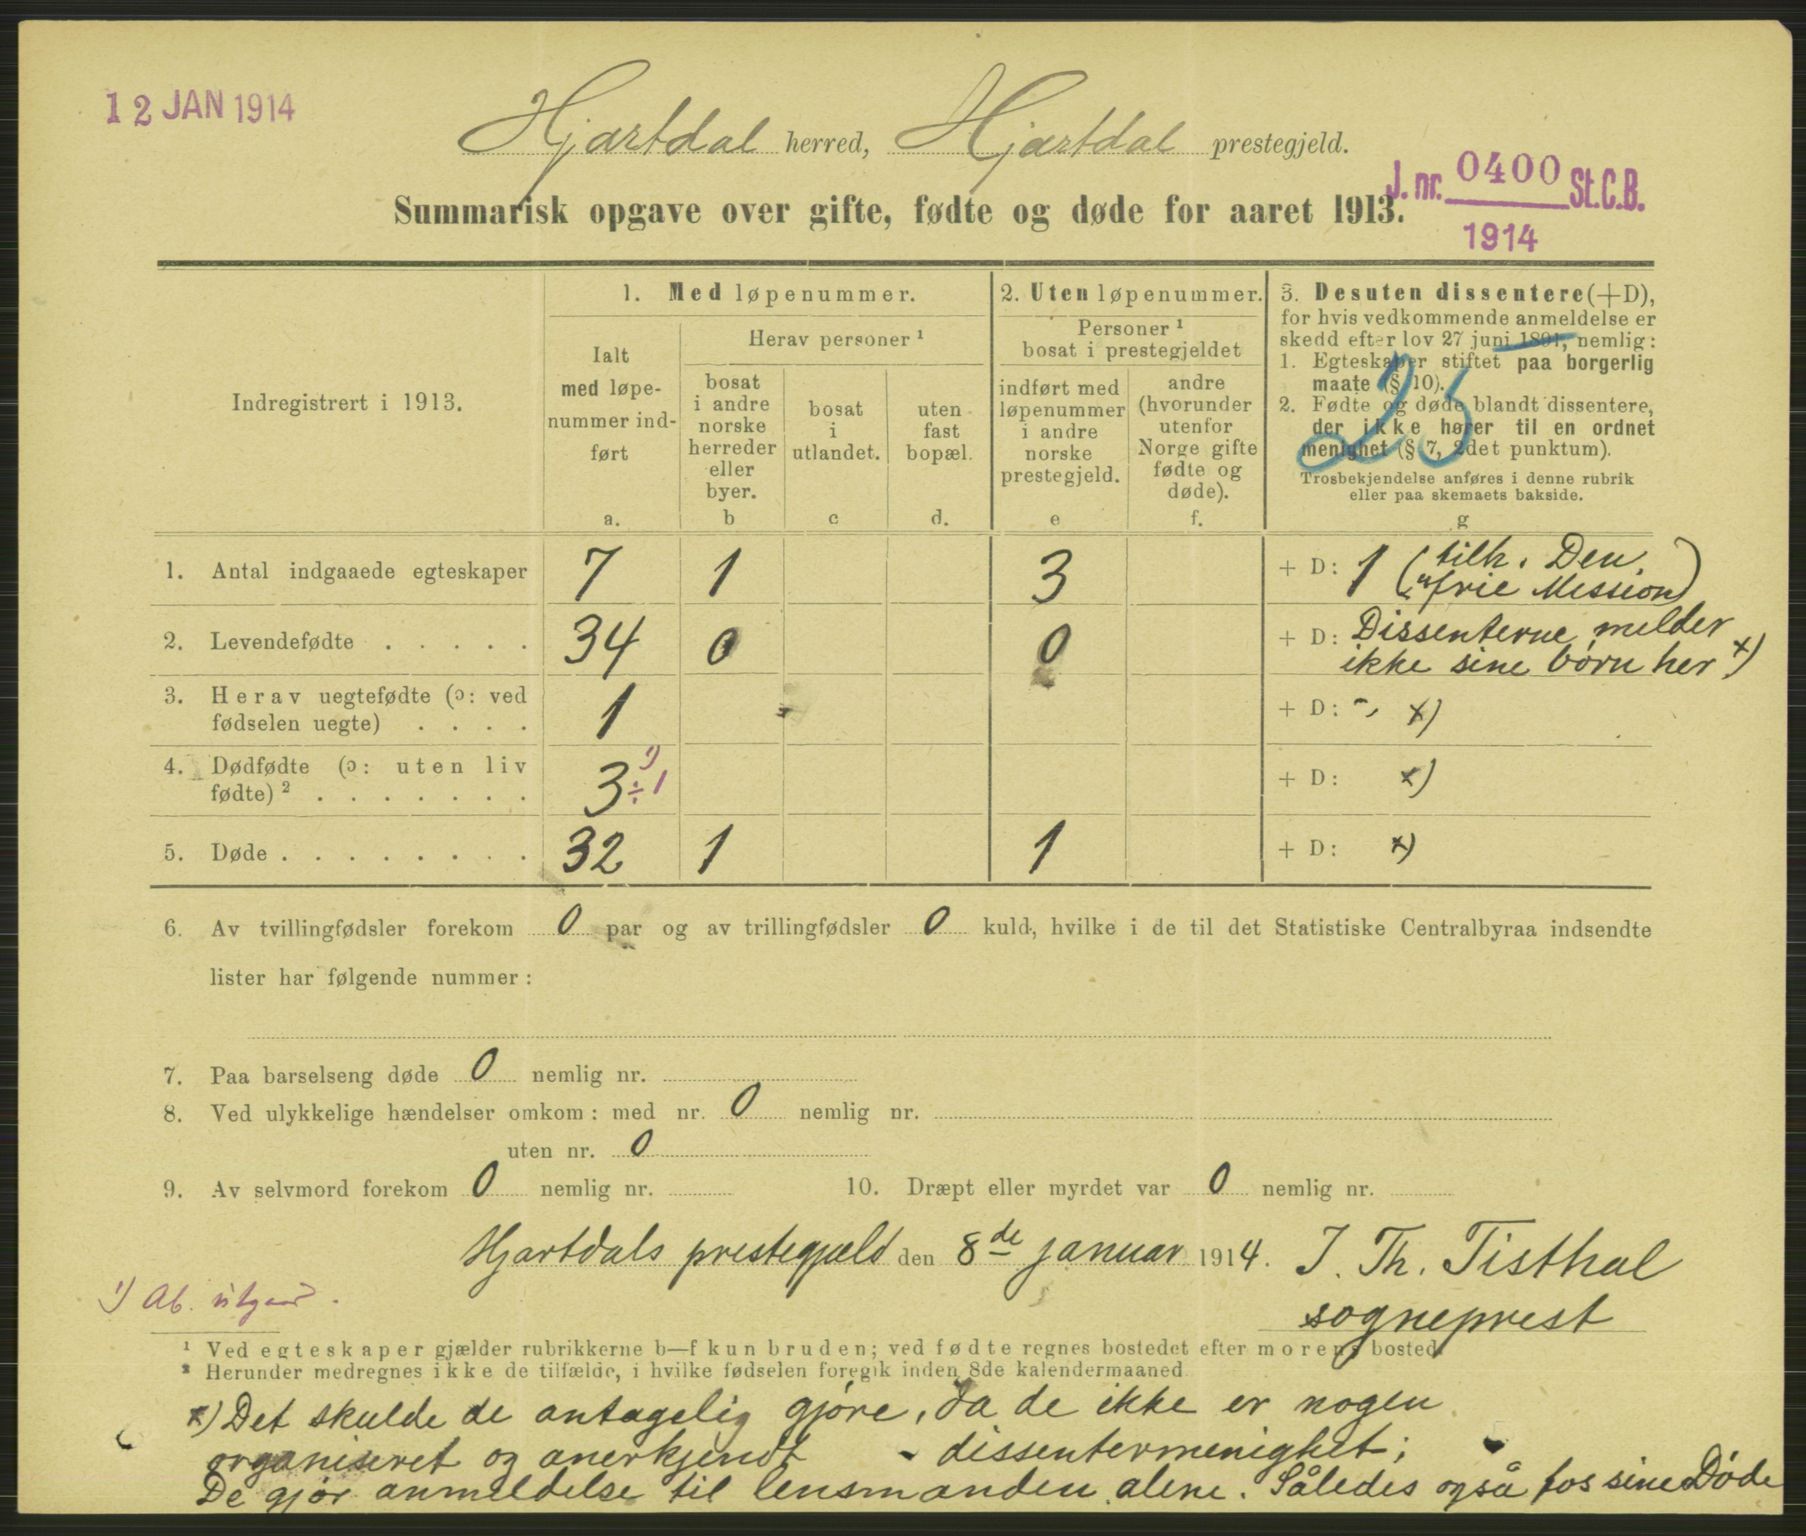 12 JAN 1914
Hjartdal herred, Hjartdal prestegjeld.
J. nr. 0400 St.C.B.
1914
Summarisk opgave over gifte, fødte og døde for aaret 1913.
Indregistrert i 1913.
1. Med løpenummer.
Ialt
med løpe-
nummer ind-
ført
a.
Herav personer ¹
bosat
i andre
norske
herreder
eller
byer.
b
bosat
i
utlandet.
c
uten
fast
bopæl.
d.
2. Uten løpenummer.
Personer ¹
bosat i prestegjeldet
indført med
løpenummer
i andre
norske
prestegjeld.
e
andre
(hvorunder
utenfor
Norge gifte
fødte og
døde).
f.
3. Desuten dissentere (+D),
for hvis vedkommende anmeldelse er
skedd efter lov 27 juni 1891, nemlig:
1. Egteskaper stiftet paa borgerlig
maate (§ 10).
2. Fødte og døde blandt dissentere,
der ikke hører til en ordnet
menighet (§ 7, 2det punktum).
Trosbekjendelse anføres i denne rubrik
eller paa skemaets bakside.
g
25
1. Antal indgaaede egteskaper 7 1 3 + D: 1 (tilh. "Den
frie Mission)
2. Levendefødte . . . . . 34 0 0 + D: Dissenterne melder
ikke sine børn her x)
3. Herav uegtefødte (ɔ: ved
fødselen uegte) . . . . 1 + D: -, x)
4. Dødfødte (ɔ: uten liv
fødte) ² . . . . . . . 3 ¹) ÷1 + D: x)
5. Døde . . . . . . . . 32 1 1 + D: x)
6. Av tvillingfødsler forekom 0 par og av trillingfødsler 0 kuld, hvilke i de til det Statistiske Centralbyraa indsendte
lister har følgende nummer:
7. Paa barselseng døde 0 nemlig nr.
8. Ved ulykkelige hændelser omkom: med nr. 0 nemlig nr.
uten nr. 0
9. Av selvmord forekom 0 nemlig nr. 10. Dræpt eller myrdet var 0 nemlig nr.
Hjartdals prestegjæld den 8de januar 1914. J. Th. Tisthal
sogneprest
¹) Ab. utgaar.
¹ Ved egteskaper gjælder rubrikkerne b—f kun bruden; ved fødte regnes bostedet efter morens bosted.
² Herunder medregnes ikke de tilfælde, i hvilke fødselen foregik inden 8de kalendermaaned.
x) Det skulde de antagelig gjøre, da de ikke er nogen
organiseret og anerkjendt - dissentermenighet;
De gjør anmeldelse til lensmanden alene. Således også fos sine Døde